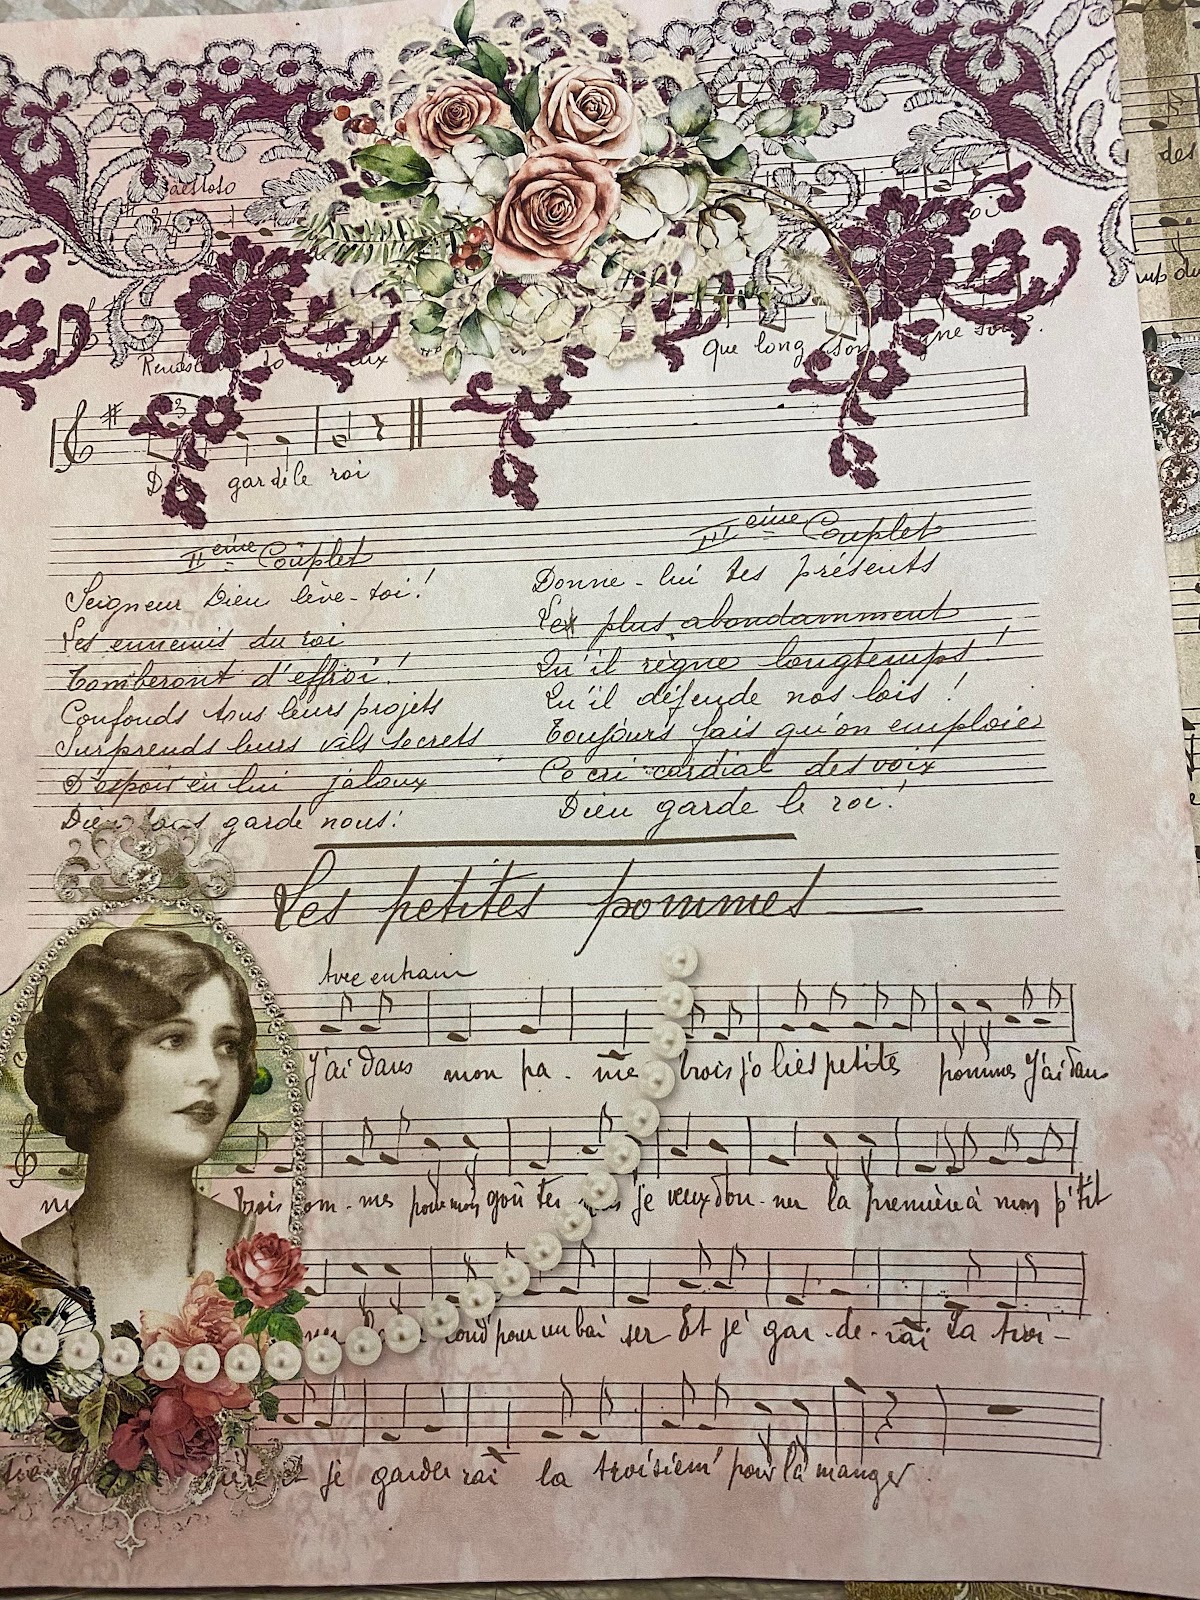 aestoso
des
Que long son gne sour.
gar de le roi
IIeme Couplet
Seigneur Dieu lève-toi!
Les ennemis du roi
Tomberont d'effroi!
Confonds tous leurs projets
Surprends leurs vils secrets
D'espoir en lui jaloux
Dieu garde nous!
IIIeme Couplet
Donne-lui tes présents
Les plus abondamment
Qu'il règne longtemps!
Qu'il défende nos lois!
Toujours fais qu'on emploie
Ce cri cordial des voix
Dieu garde le roi!
Les petites pommes
Avec entrain
J'ai dans mon pa-nie trois jolies petites pommes J'ai dans
trois om-mes pour mon goûter je veux don-ner la première à mon p'tit
cond' pour un bai ser Et je gar-de-rai La troi-
et je garderai la troisiem' pour la manger.